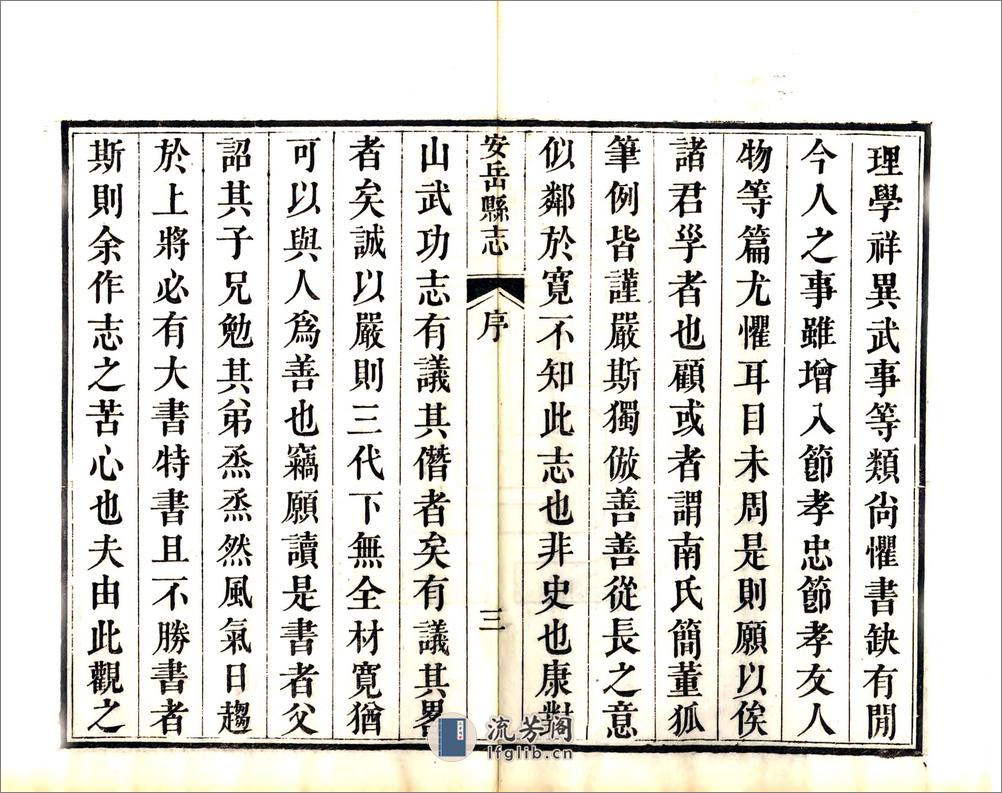 理學祥異武事等類尙懼書缺有閒
今人之事雖增入節孝忠節孝友人
物等篇尤懼耳目未周是則願以俟
諸君孚者也顧或者謂南氏簡董狐
筆例皆謹嚴斯獨倣善善從長之意
似鄰於寬不知此志也非史也康對
安岳縣志 序 三
山武功志有議其僭者矣有議其畧
者矣誠以嚴則三代下無全材寬猶
可以與人爲善也竊願讀是書者父
詔其子兄勉其弟烝烝然風氣日趨
於上將必有大書特書且不勝書者
斯則余作志之苦心也夫由此觀之
流芳閣
lfglib.cn